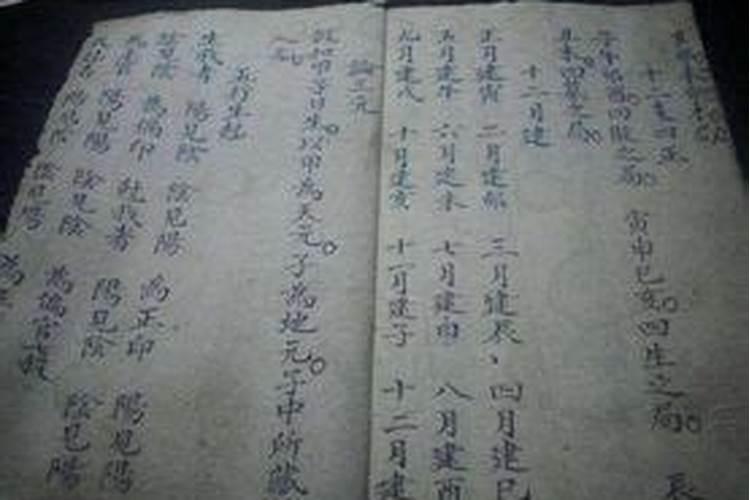 十二支四正
子午卯酉。四敗之局。寅申巳亥。四生之局。辰
丑未。四墓之局。
十二月建
正月建寅 二月建卯 三月建辰、四月建巳
五月建午 六月建未 七月建申 八月建酉
九月建戌 十月建亥 十一月建子 十二月建
論三元
假如甲子日生。以甲為天元。子為地元。子中所藏
五行生尅
生我者 陽見陰 陰見陽 為正印 陽見陽
陰見陰 為偏印 尅我者 陽見陰 陰見陽
陽見陽 陰見陰 為偏官
陽見陰 陰見陽 為正